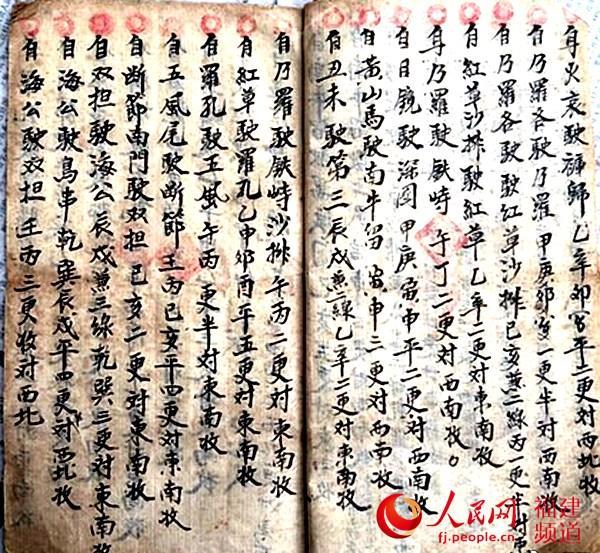 自火哀駛裤歸乙辛卯酉平二更对西北收
自乃羅各駛乃羅甲庚卯酉一更半对西南收
自乃羅各駛駛紅草沙排巳亥兼二線丙一更半对東
自紅草沙排駛紅草乙辛二更对東南收
自乃羅駛鉄峙午丁二更对西南收。
自目鏡駛深圈甲庚寅申平二更对西南收
自黄山馬駛南牛留寅申三更对西南收
自丑未駛第三辰戌兼一線乙辛二更对東南收
自乃羅駛鉄峙沙排午丙二更对東南收
自紅草駛羅孔乙申卯酉平五更对東南收
自羅孔駛五風午丙更半对東南收
自五風尾駛断節壬丙巳亥平四更对東南收
自断節南門駛双担巳亥二更对東南收
自双担駛海公辰戌兼三線乾巽三更对東南收
自海公駛鳥串乾巽辰戌平四更对西北收
自海公駛双担壬丙三更收对西北
人民网 福建频道
fj.people.cn